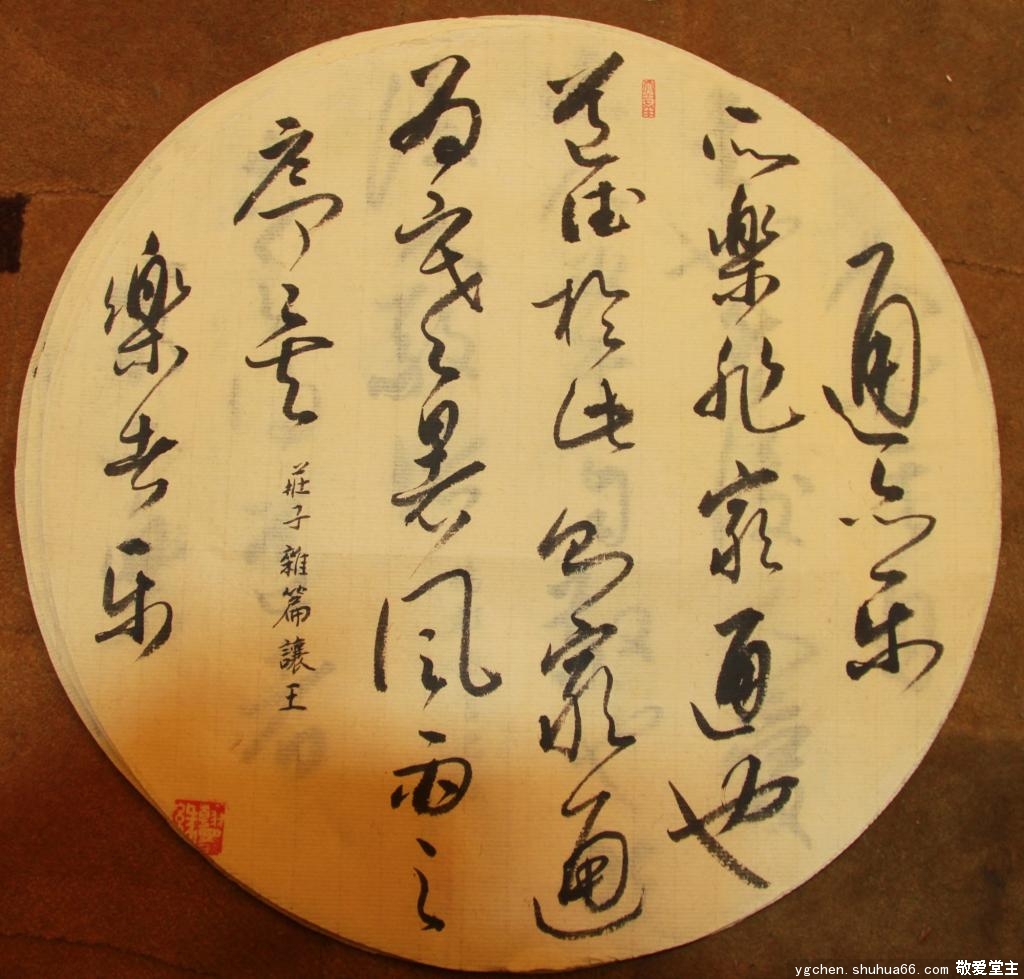 通亦乐
所樂非窮通也
道德於此則窮通
為寒暑風雨之
序矣
莊子雜篇讓王
樂者乐
ygchen.shuhua66.com 敬爱堂主